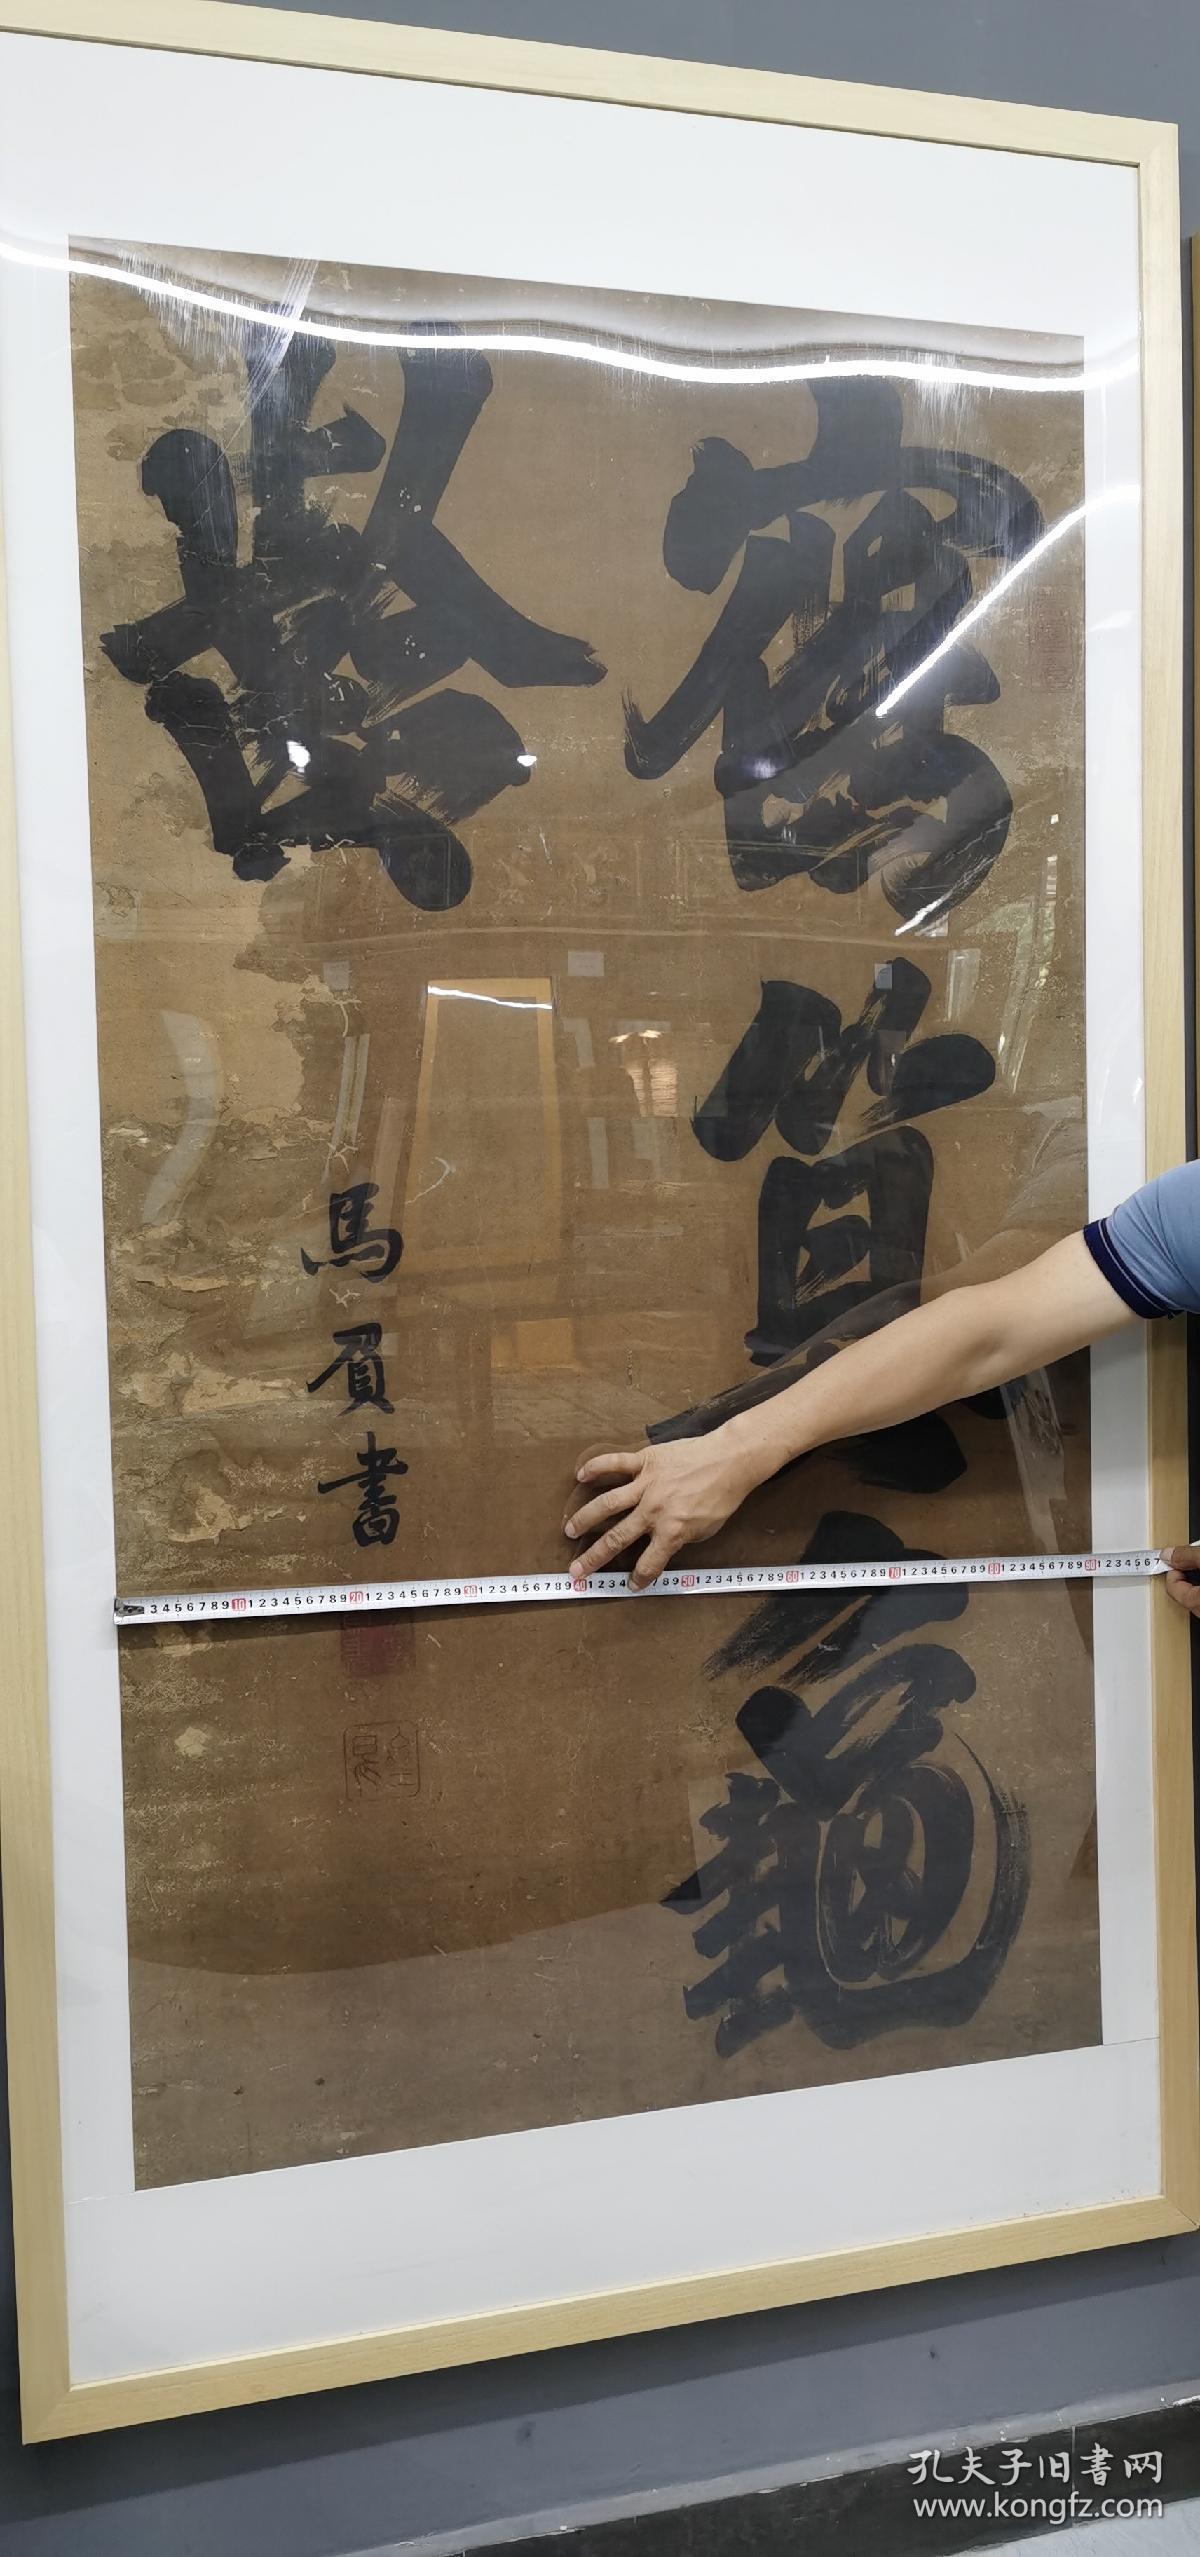 鶴算龜
齡
馬負書
3 4 5 6 7 8 9 10 1 2 3 4 5 6 7 8 9 20 1 2 3 4 5 6 7 8 9 30 1 2 3 4 5 6 7 8 9 40 1 2 3 4 7 8 9 50 1 2 3 4 5 6 7 8 9 60 1 2 3 4 5 6 7 8 9 70 1 2 3 4 5 6 7 8 9 80 1 2 3 4 5 6 7 8 9 90 1 2 3 4 5 6 7
孔夫子旧書网
www.kongfz.com